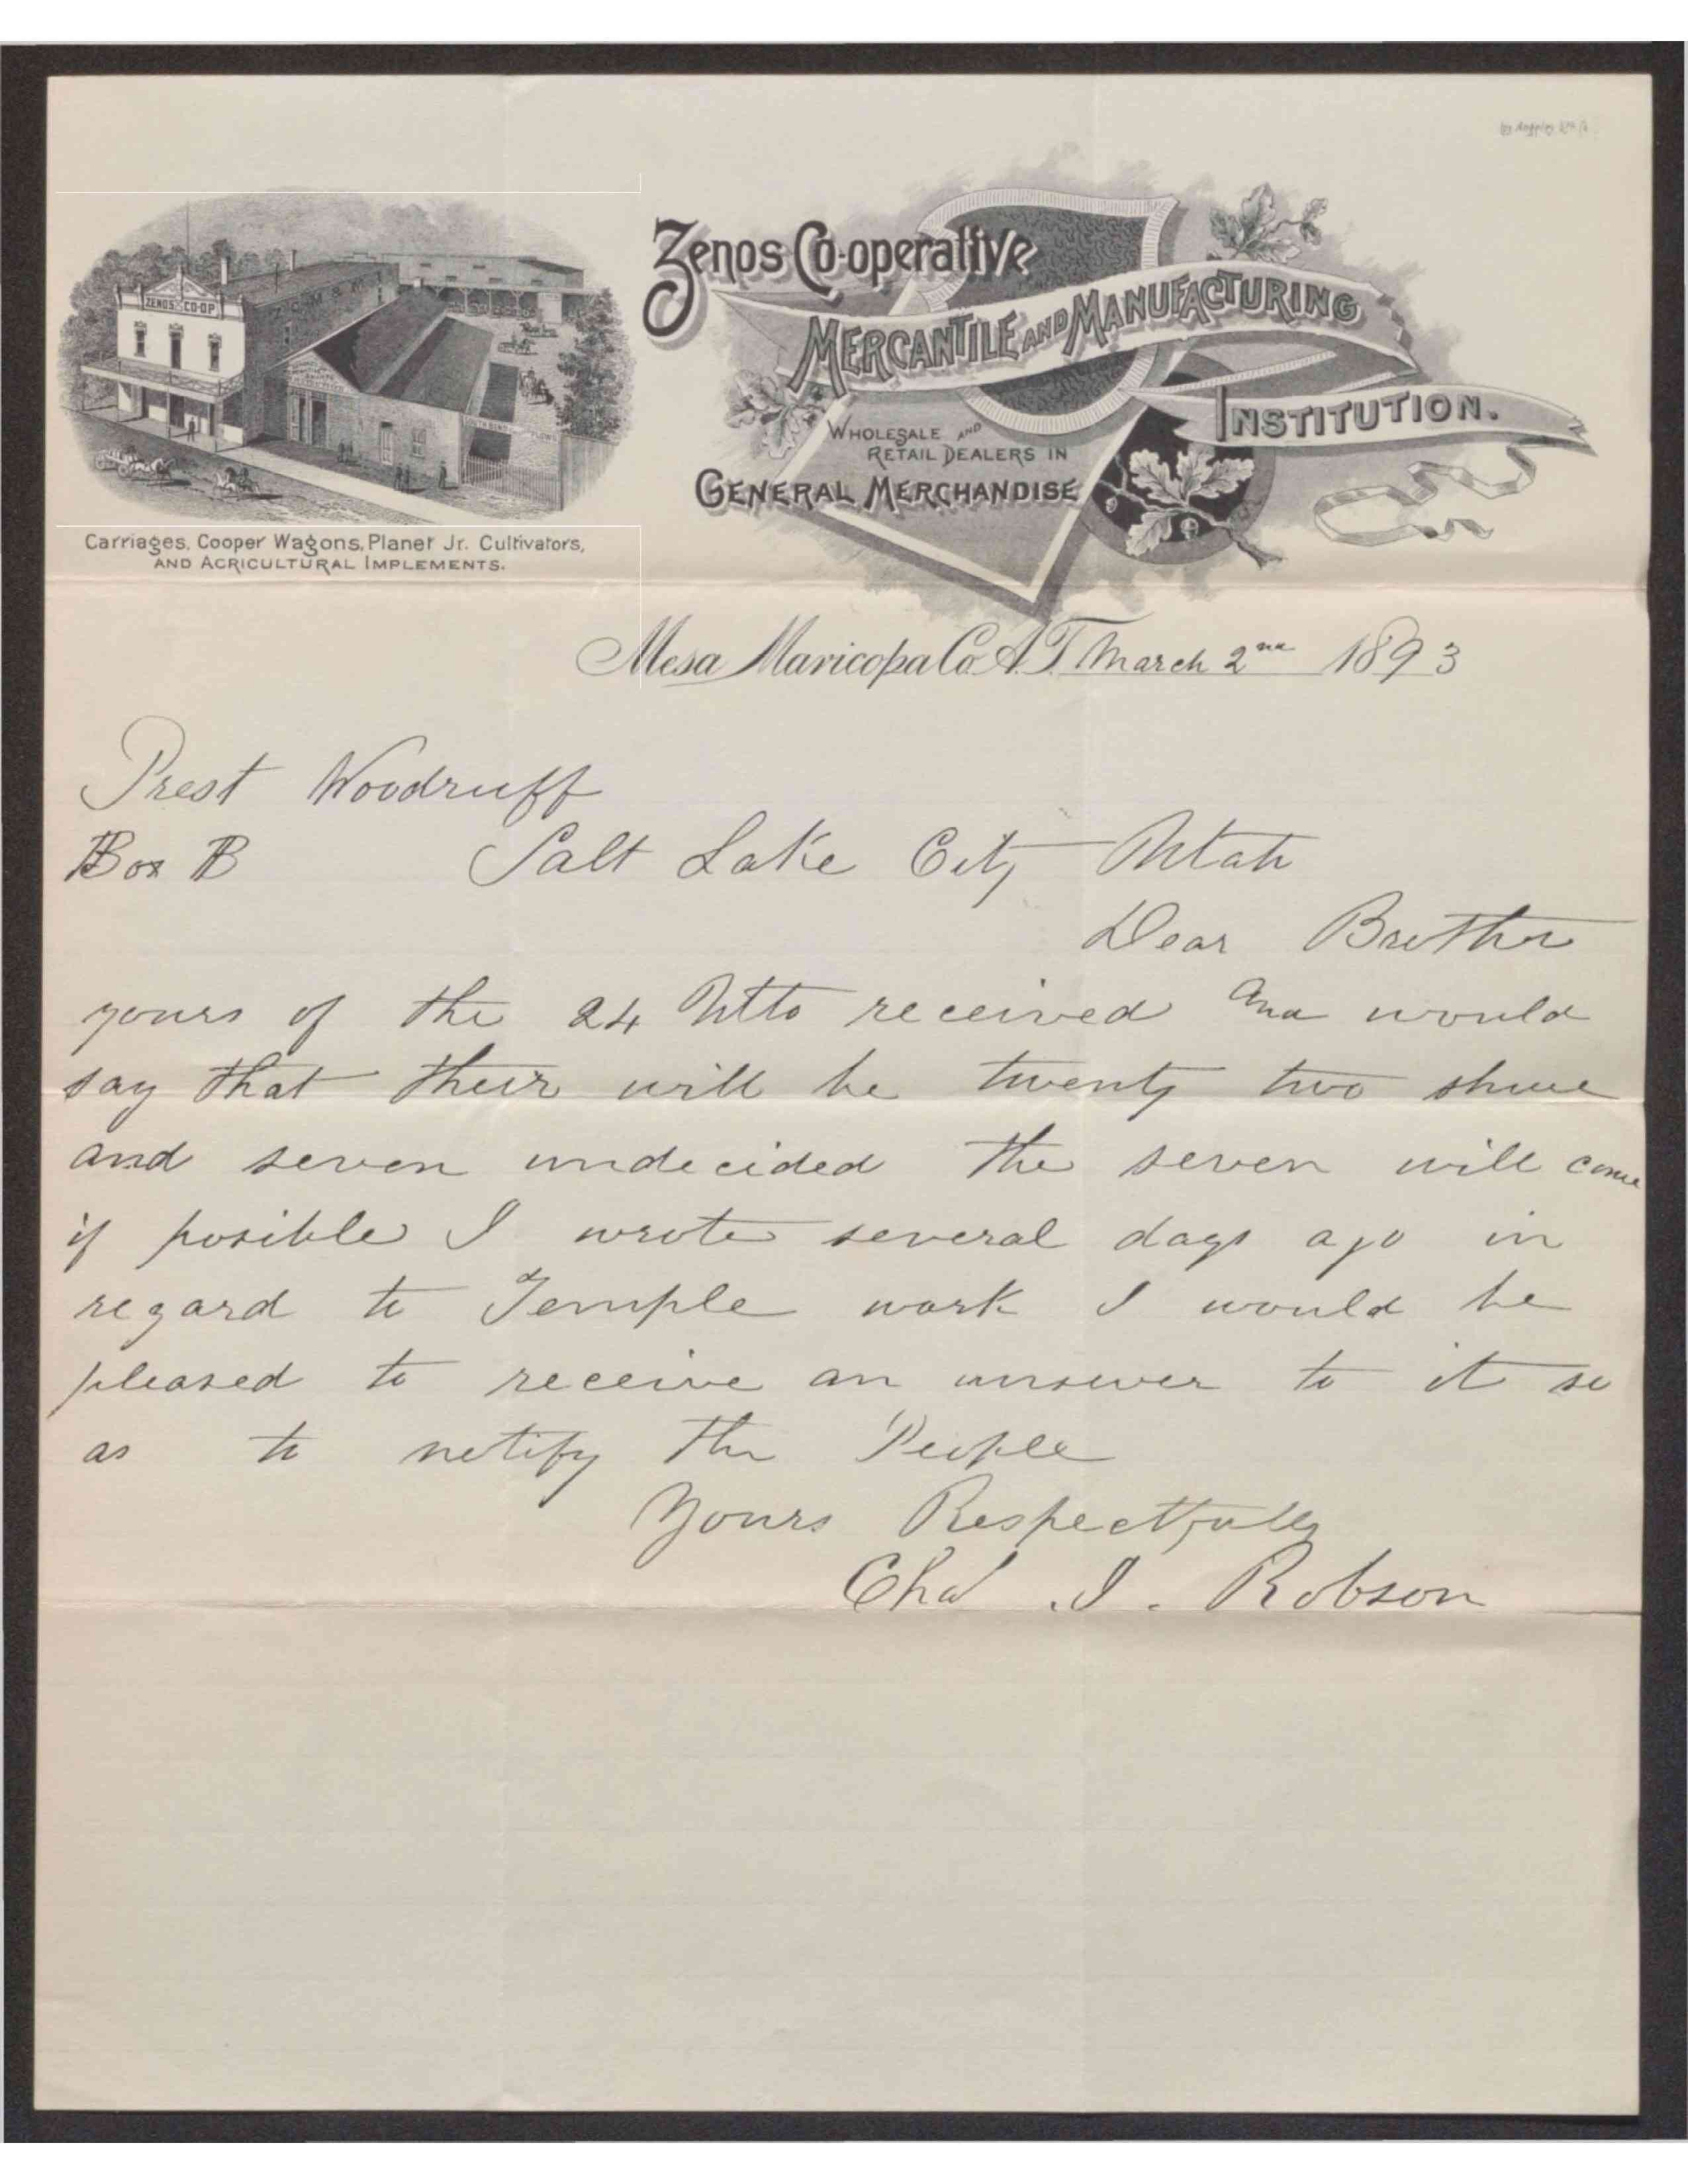 ZENOS CO-OP
Z. C. M. & M. I.
SOUTH BEND PLOWS
Carriages, Cooper Wagons, Planet Jr. Cultivators,
AND AGRICULTURAL IMPLEMENTS.
Zenos Co-operative
MERCANTILE AND MANUFACTURING
INSTITUTION.
WHOLESALE AND
RETAIL DEALERS IN
GENERAL MERCHANDISE
Mesa Maricopa Co. A.T. March 2nd 1893
Prest Woodruff
Box B Salt Lake City Utah
Dear Brother
yours of the 24 Ulto received and would
say that their will be twenty two shure
and seven undecided the seven will come
if posible I wrote several days ago in
regard to Temple work I would be
pleased to receive an answer to it so
as to notify the People
Yours Respectfully
Chas I. Robson